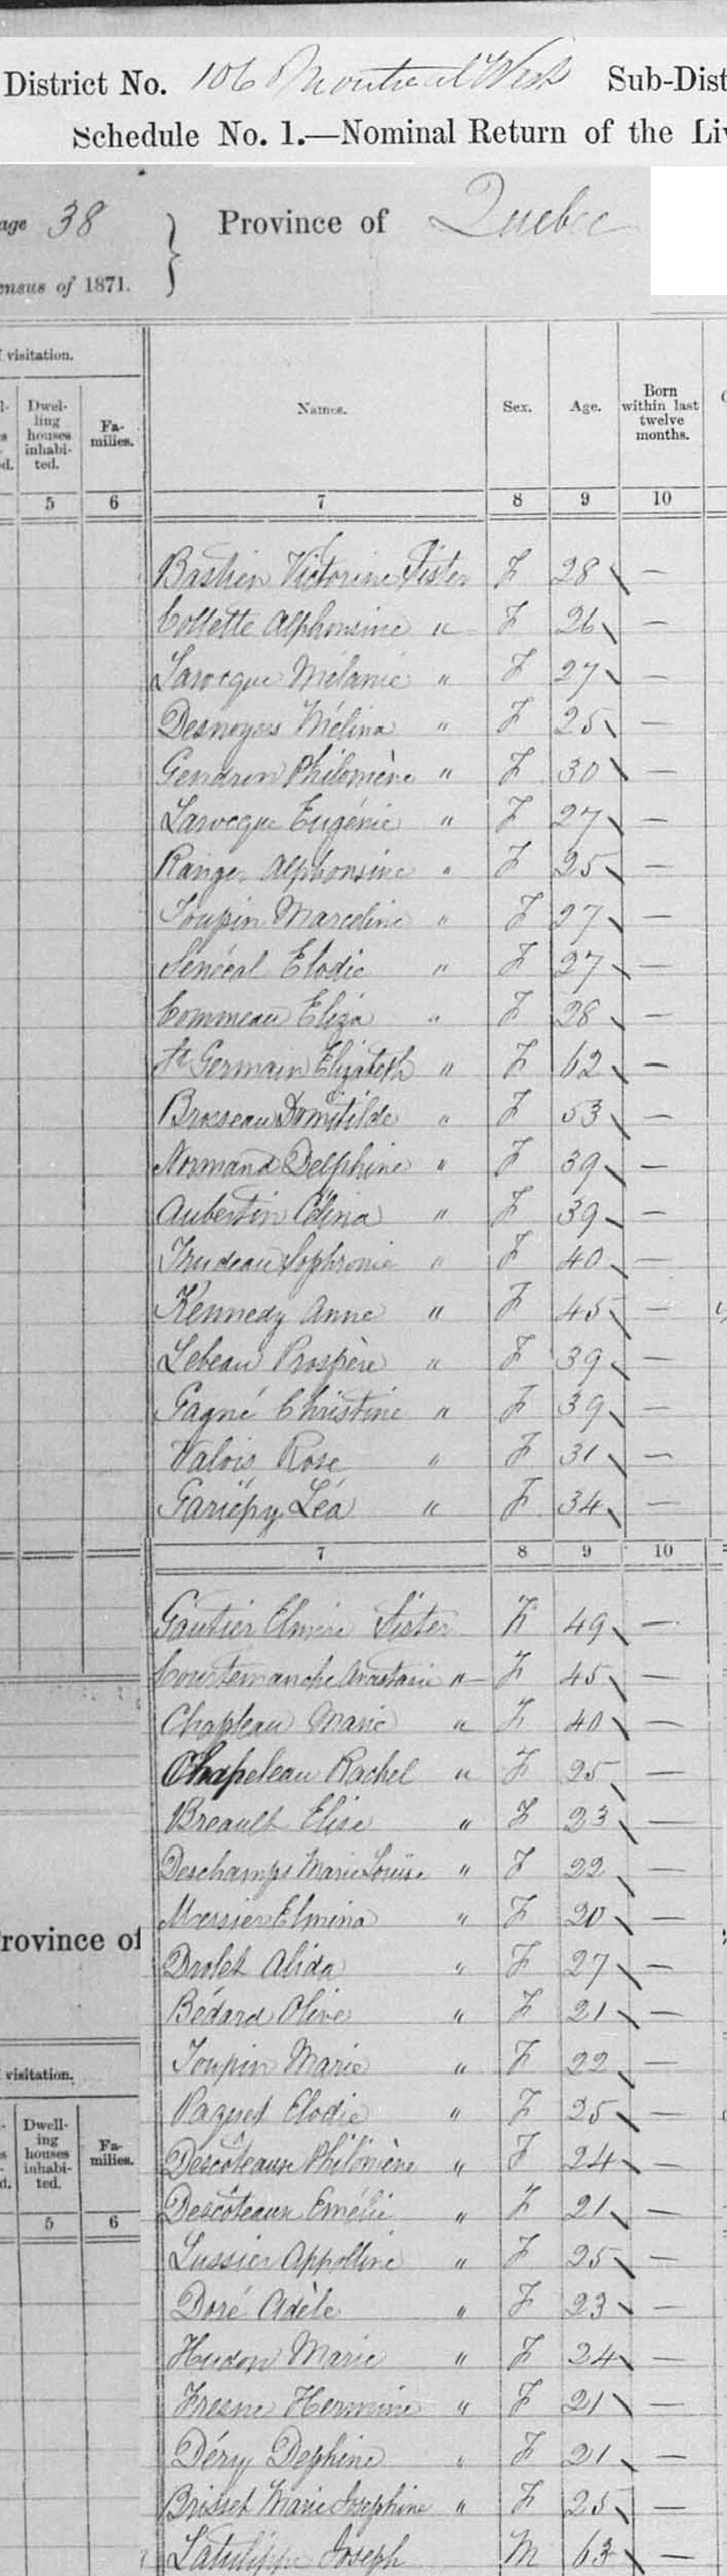 District No. 106 Montreal West Sub-Dist
Schedule No. 1.—Nominal Return of the Liv
age 38 } Province of Quebec
ensus of 1871.
visitation.
Dwel-ling houses inhabi-ted. Fa-milies. Names. Sex. Age. Born within last twelve months.
5 6 7 8 9 10
Bastien Victorine Sister F 28 —
Collette Alphonsine " F 26 —
Larocque Mélanie " F 27 —
Desnoyers Mélina " F 25 —
Gendron Philomène " F 30 —
Larocque Eugénie " F 27 —
Ranger Alphonsine " F 25 —
Toupin Marceline " F 27 —
Senécal Elodie " F 27 —
Commeau Eliza " F 28 —
St Germain Elizabeth " F 62 —
Brosseau Domitilde " F 53 —
Normand Delphine " F 39 —
Aubertin Célina " F 39 —
Trudeau Sophronie " F 40 —
Kennedy Anne " F 45 —
Lebeau Prospère " F 39 —
Gagné Christine " F 39 —
Valois Rose " F 31 —
Gariépy Léa " F 34 —
7 8 9 10
Gautier Elmire Sister F 49 —
Courtemanche Anastasie " F 45 —
Chapleau Marie " F 40 —
Chapeleau Rachel " F 25 —
Breault Elise " F 23 —
Deschamps Marie Louise " F 22 —
Messier Elmina " F 20 —
rovince of
Drolet Alida " F 27 —
Bédard Olive " F 21 —
Toupin Marie " F 22 —
visitation.
Paquet Elodie " F 25 —
Dwell-ing houses inhabi-ted. Fa-milies.
Descôteaux Philomène " F 24 —
Descôteaux Emélie " F 21 —
5 6
Lussier Appolline " F 25 —
Doré Adèle " F 23 —
Hudon Marie " F 24 —
Fresne Hermine " F 21 —
Déry Dephine " F 21 —
Brisset Marie Josephine " F 25 —
Latulippe Joseph M 63 —